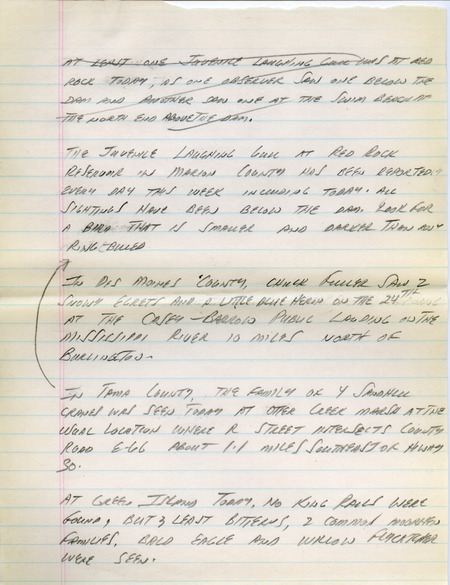 AT LEAST ONE JUVENILE LAUGHING GULL WAS AT RED
ROCK TODAY, AS ONE OBSERVER SAW ONE BELOW THE
DAM AND ANOTHER SAW ONE AT THE SWIM BEACH AT
THE NORTH END ABOVE THE DAM.
THE JUVENILE LAUGHING GULL AT RED ROCK
RESERVOIR IN MARION COUNTY HAS BEEN REPORTED
EVERY DAY THIS WEEK INCLUDING TODAY. ALL
SIGHTINGS HAVE BEEN BELOW THE DAM. LOOK FOR
A BIRD THAT IS SMALLER AND DARKER THAN ANY
RING-BILLED
IN DES MOINES COUNTY, CHUCK FULLER SAW 2
SNOWY EGRETS AND A LITTLE BLUE HERON ON THE 24TH
AT THE CASEY-BARROW PUBLIC LANDING ON THE
MISSISSIPPI RIVER 10 MILES NORTH OF
BURLINGTON.
IN TAMA COUNTY, THE FAMILY OF 4 SANDHILL
CRANES WAS SEEN TODAY AT OTTER CREEK MARSH AT THE
USUAL LOCATION WHERE R STREET INTERSECTS COUNTY
ROAD E-66 ABOUT 1.1 MILES SOUTHEAST OF HIWAY
30.
AT GREEN ISLAND TODAY, NO KING RAILS WERE
FOUND, BUT 3 LEAST BITTERNS, 2 COMMON MOORHEN
FAMILIES, BALD EAGLE AND WILLOW FLYCATCHER
WERE SEEN.